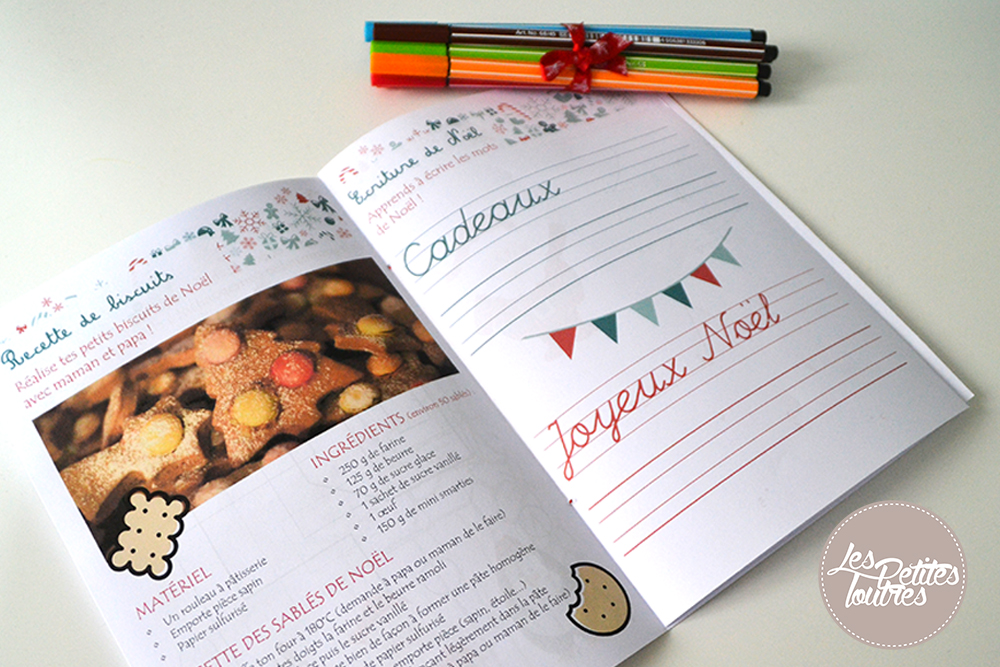 Recette de biscuits
Réalise tes petits biscuits de Noël
avec maman et papa !
INGRÉDIENTS (environ 50 sablés)
250 g de farine
125 g de beurre
70 g de sucre glace
1 sachet de sucre vanillé
1 œuf
150 g de mini smarties
MATÉRIEL
Un rouleau à pâtisserie
Emporte pièce sapin
Papier sulfurisé
DES SABLÉS DE NOËL
ton four à 180°C (demande à papa ou maman de le faire)
doigts la farine et le beurre ramoli
puis le sucre vanillé
bien de façon à former une pâte homogène
de papier sulfurisé
emporte pièce (sapin, étoile...)
légèrement dans la pâte
à papa ou maman de le faire)
Ecriture de Noël
Apprends à écrire les mots
de Noël !
Cadeaux
Joyeux Noël
Les
Petites
loutres